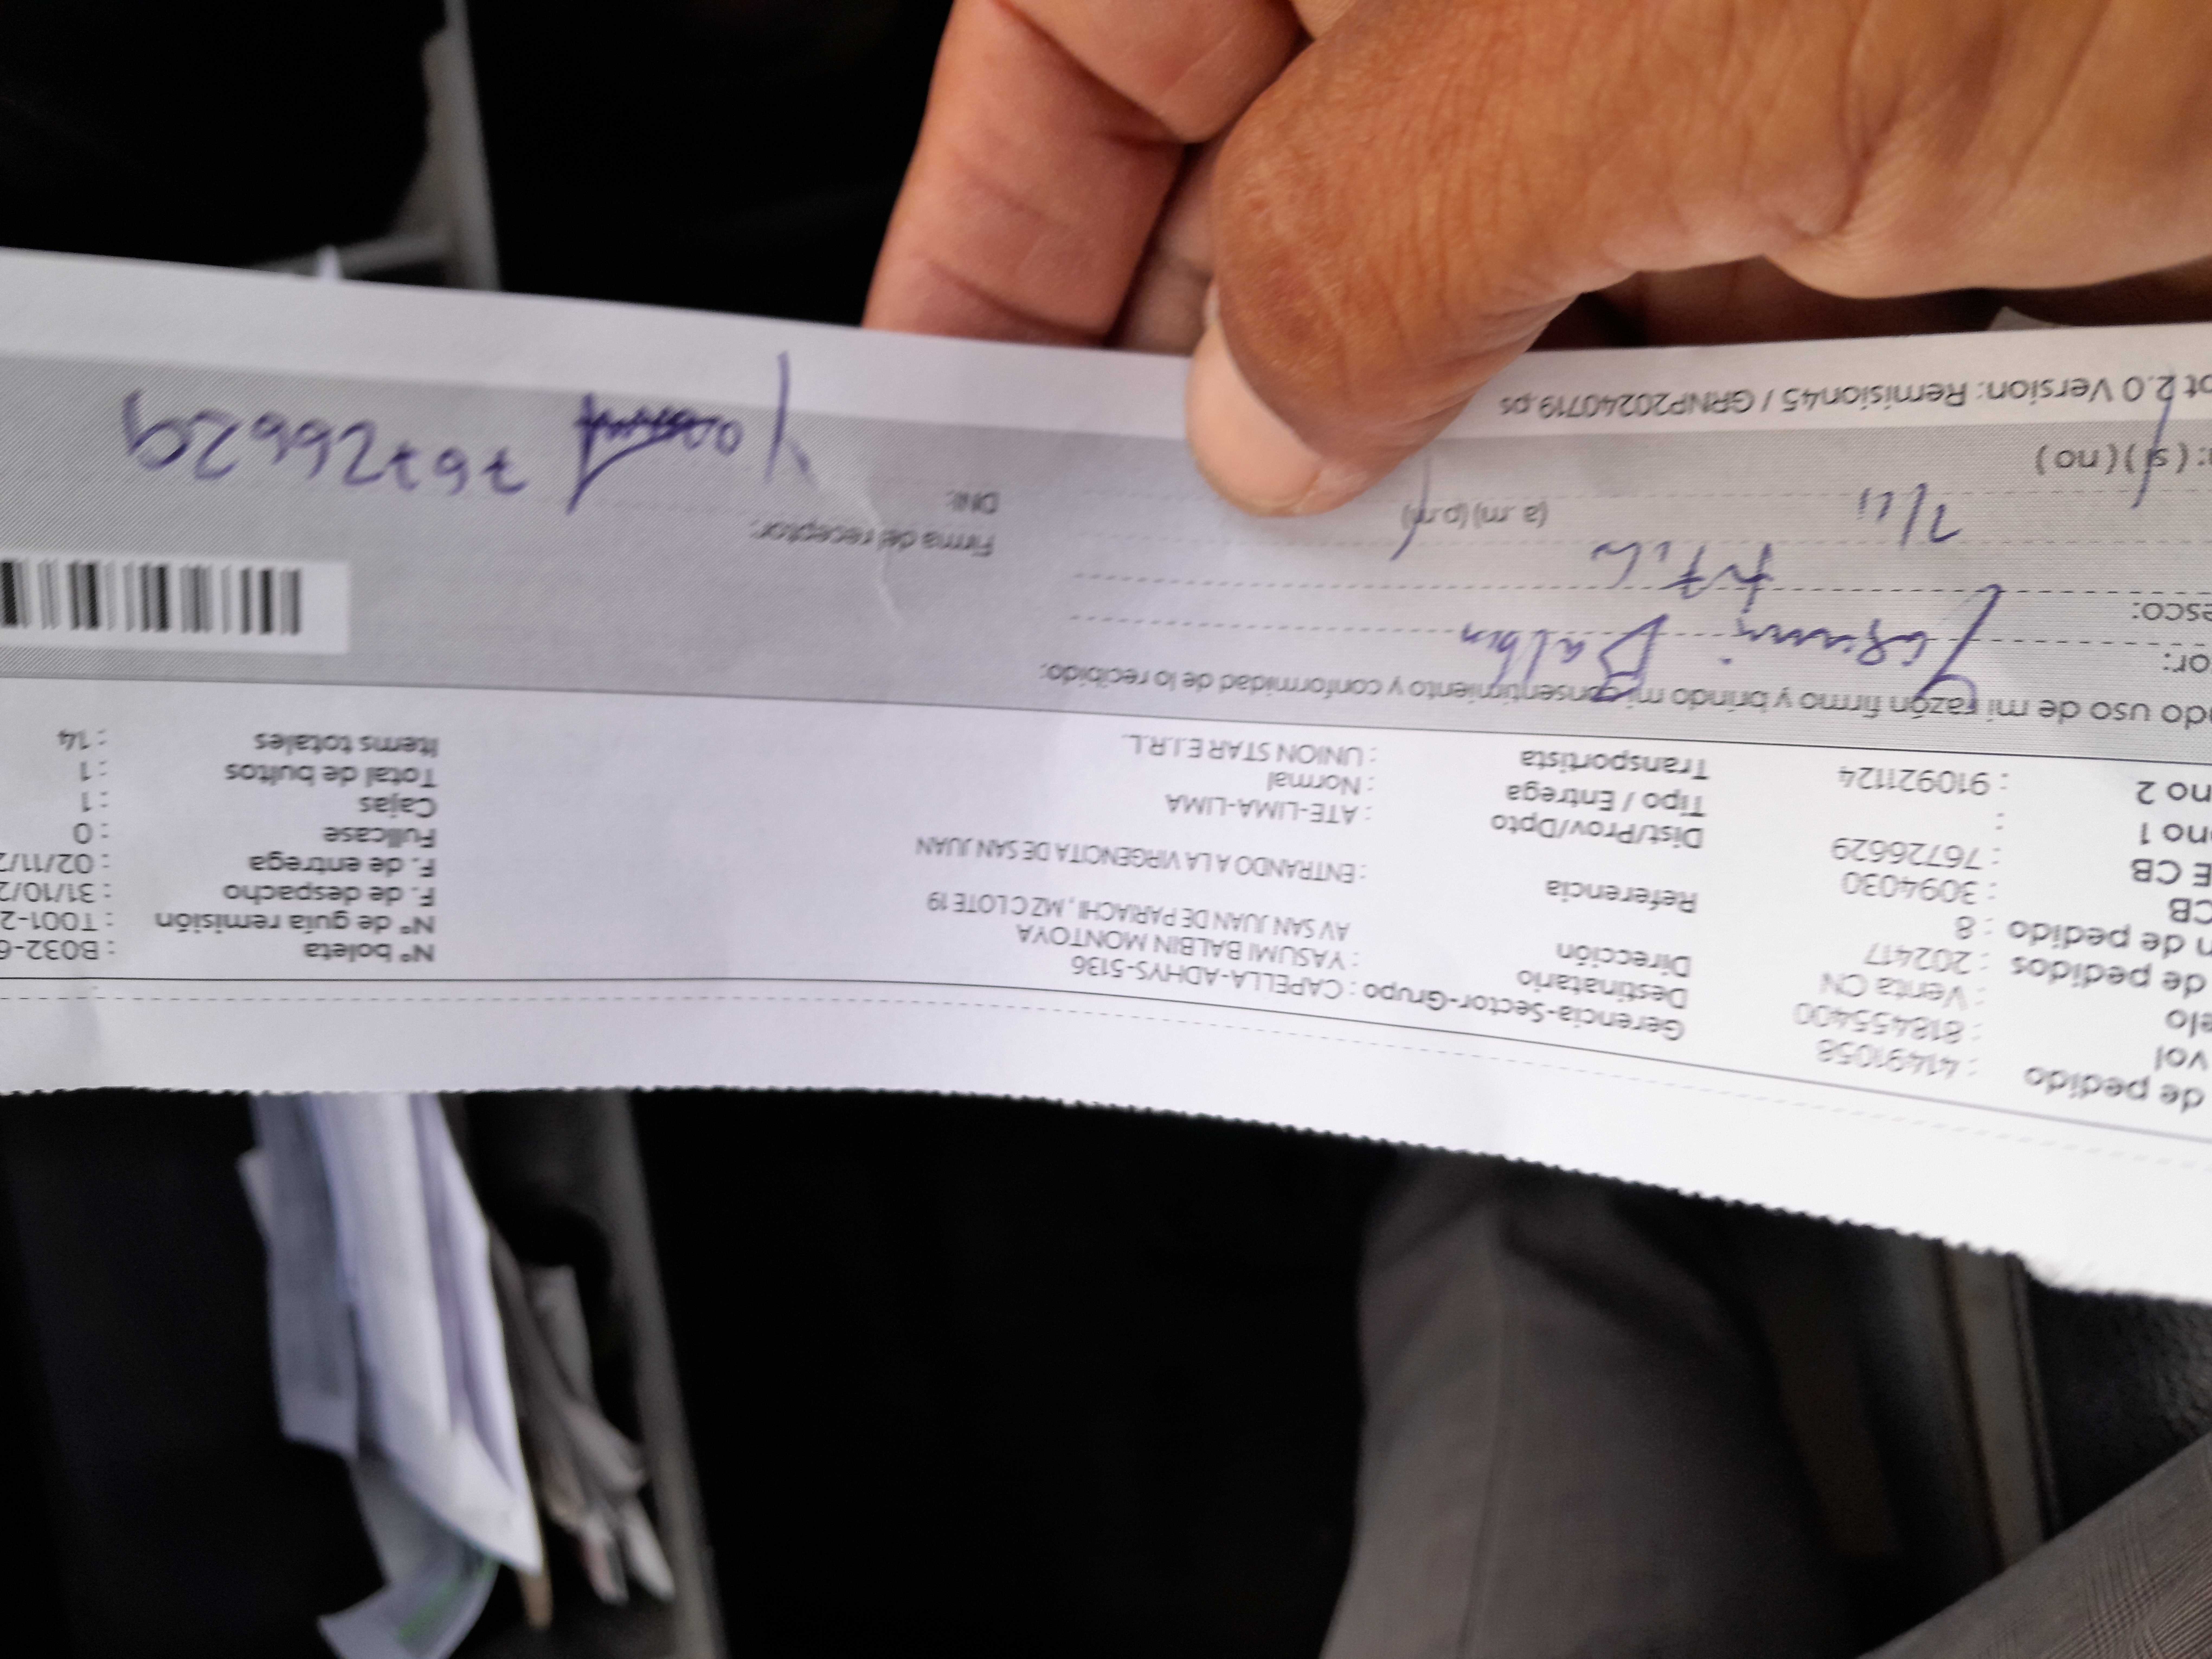 de pedido : 41491058
vol : 818455400
elo : Venta CN
de pedidos : 202417
n de pedido : 8
CB : 3094030
E CB : 76726629
ono 1 :
no 2 : 910921124
Gerencia-Sector-Grupo : CAPELLA-ADHYS-5136
Destinatario : YASUMI BALBIN MONTOYA
Dirección AV SAN JUAN DE PARIACHI , MZ C LOTE 19
Referencia : ENTRANDO A LA VIRGENCITA DE SAN JUAN
Dist/Prov/Dpto : ATE-LIMA-LIMA
Tipo / Entrega : Normal
Transportista : UNION STAR E.I.R.L.
Nº boleta : B032-6
Nº de guía remisión : T001-2
F. de despacho : 31/10/2
F. de entrega : 02/11/2
Fullcase : 0
Cajas : 1
Total de bultos : 1
Items totales : 14
do uso de mi razón firmo y brindo mi consentimiento y conformidad de lo recibido.
or: Yasumi Balbin
esco:
(a .m) (p.m)
: (si) (no)
Firma del receptor:
DNI:
76726629
pt 2.0 Version: Remision45 / GRNP20240719.ps